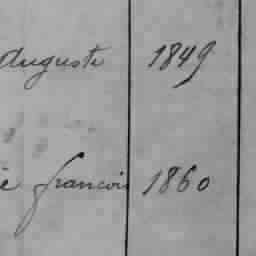 Auguste 1849
ie francois 1860